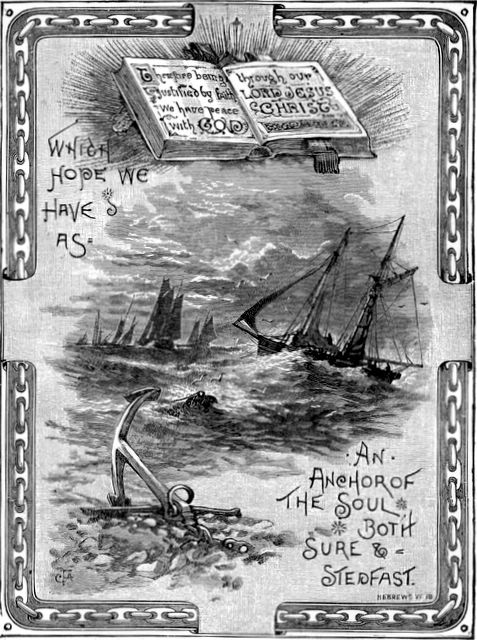 Therefore being
justified by faith
we have peace
with GOD
through our
LORD JESUS
CHRIST
WHICH
HOPE WE
HAVE
AS
AN
ANCHOR OF
THE SOUL
BOTH
SURE &
STEDFAST.
HEBREWS VI